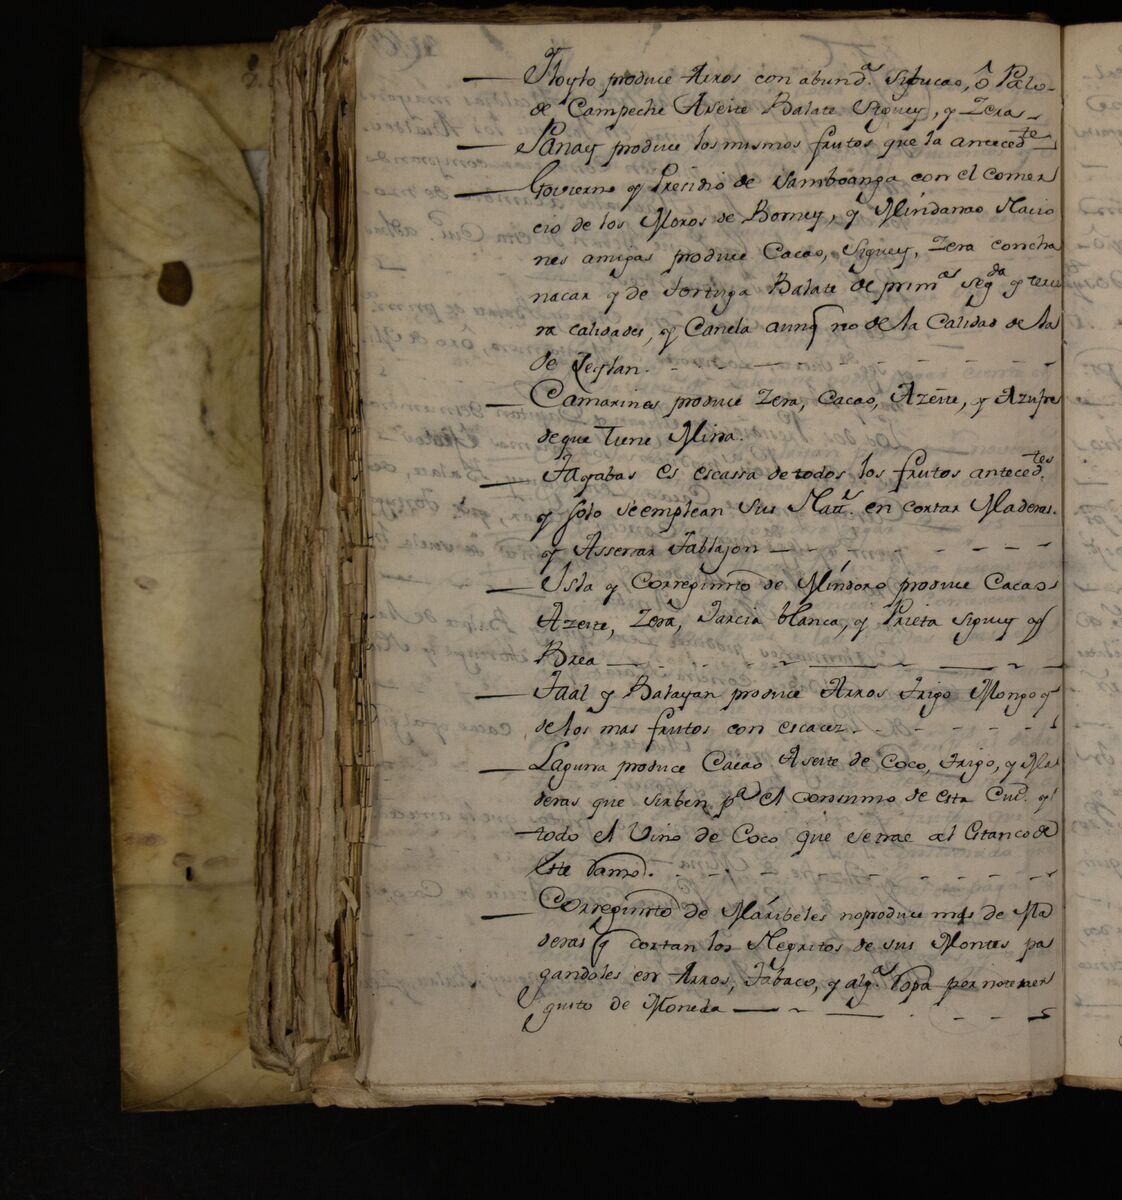 Yloylo produce Arros con abund.ª Sibucao, ô Palo
de Campeche Aseite Balate Siguey, y Zera
Panay produce los mismos frutos que la anteced.te
Govierno y Presidio de Samboanga con el Comer
cio de los Moros de Borney, y Míndanao Nacio
nes amigas produce Cacao, Siguey, Zera concha
nacar y de Tortuga Balate de prim.as seg.da y terce
ra calidades, y Canela aunq no de la Calidad de la
de Zeylan.
Camarines produce Zera, Cacao, Azeite, y Azufre
de que tiene Mina.
Tayabas es escassa de todos los frutos anteced.tes
y solo se emplean sus Natt.s en cortar Maderas.
y Asserrar Tablazon
Ysla y Corregimto de Míndoro produce Cacao
Azeite, Zera, Jarcia blanca, y Prieta Siguey y
Brea
Taal y Balayan produce Arros Trigo Mongo y
de los mas frutos con escacez.
Laguna produce Cacao Aseite de Coco, Trigo, y Ma
deras que sirben p.ª el consumo de esta Ciud. y
todo el Vino de Coco que se trae al Estanco de
este Ramo.
Corregimto de Máribeles no produce mas de Ma
deras q cortan los Negritos de sus Montes pa
gandoles en Arros, Tabaco, y alg.ª Ropa por no tener
gusto de Moneda